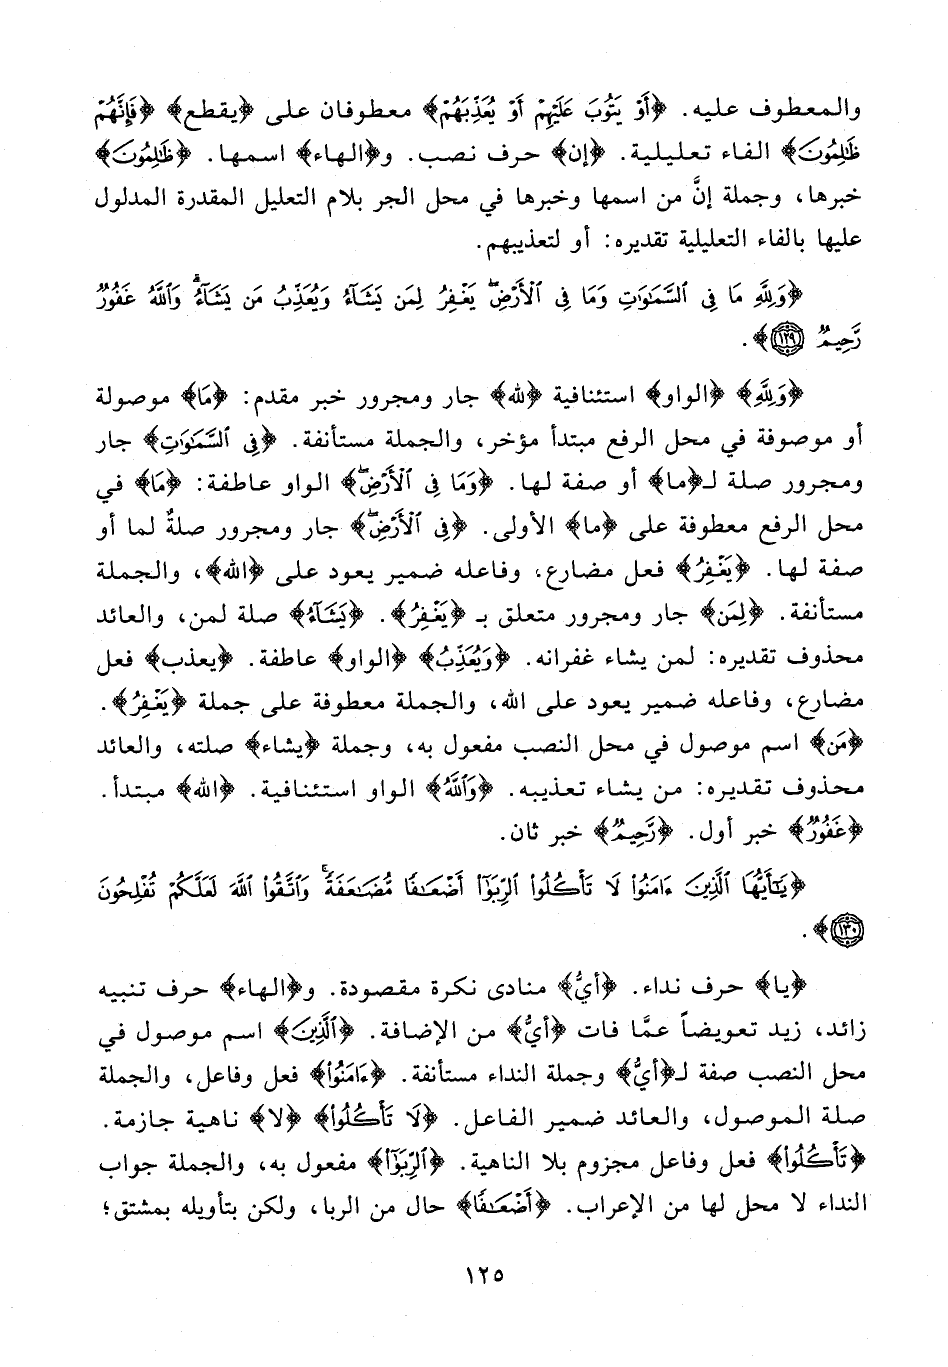 والمعطوف عليه. ﴿أَوْ يَتُوبَ عَلَيْهِمْ أَوْ يُعَذِّبَهُمْ﴾ معطوفان على ﴿يقطع﴾ ﴿فَإِنَّهُمْ
ظَٰلِمُونَ﴾ الفاء تعليلية. ﴿إن﴾ حرف نصب. و﴿الهاء﴾ اسمها. ﴿ظَٰلِمُونَ﴾
خبرها، وجملة إنَّ من اسمها وخبرها في محل الجر بلام التعليل المقدرة المدلول
عليها بالفاء التعليلية تقديره: أو لتعذيبهم.
﴿وَلِلَّهِ مَا فِى ٱلسَّمَٰوَٰتِ وَمَا فِى ٱلْأَرْضِۖ يَغْفِرُ لِمَن يَشَآءُ وَيُعَذِّبُ مَن يَشَآءُۗ وَٱللَّهُ غَفُورٌ
رَّحِيمٌ ١٢٩﴾.
﴿وَلِلَّهِ﴾ ﴿الواو﴾ استئنافية ﴿لله﴾ جار ومجرور خبر مقدم: ﴿مَا﴾ موصولة
أو موصوفة في محل الرفع مبتدأ مؤخر، والجملة مستأنفة. ﴿فِى ٱلسَّمَٰوَٰتِ﴾ جار
ومجرور صلة لـ﴿ما﴾ أو صفة لها. ﴿وَمَا فِى ٱلْأَرْضِۖ﴾ الواو عاطفة: ﴿مَا﴾ في
محل الرفع معطوفة على ﴿ما﴾ الأولى. ﴿فِى ٱلْأَرْضِۖ﴾ جار ومجرور صلةٌ لما أو
صفة لها. ﴿يَغْفِرُ﴾ فعل مضارع، وفاعله ضمير يعود على ﴿الله﴾، والجملة
مستأنفة. ﴿لِمَن﴾ جار ومجرور متعلق بـ ﴿يَغْفِرُ﴾. ﴿يَشَآءُ﴾ صلة لمن، والعائد
محذوف تقديره: لمن يشاء غفرانه. ﴿وَيُعَذِّبُ﴾ ﴿الواو﴾ عاطفة. ﴿يعذب﴾ فعل
مضارع، وفاعله ضمير يعود على الله، والجملة معطوفة على جملة ﴿يَغْفِرُ﴾.
﴿مَن﴾ اسم موصول في محل النصب مفعول به، وجملة ﴿يشاء﴾ صلته، والعائد
محذوف تقديره: من يشاء تعذيبه. ﴿وَٱللَّهُ﴾ الواو استئنافية. ﴿الله﴾ مبتدأ.
﴿غَفُورٌ﴾ خبر أول. ﴿رَّحِيمٌ﴾ خبر ثان.
﴿يَٰٓأَيُّهَا ٱلَّذِينَ ءَامَنُوا۟ لَا تَأْكُلُوا۟ ٱلرِّبَوٰٓا۟ أَضْعَٰفًا مُّضَٰعَفَةًۖ وَٱتَّقُوا۟ ٱللَّهَ لَعَلَّكُمْ تُفْلِحُونَ
١٣٠﴾.
﴿يا﴾ حرف نداء. ﴿أيُّ﴾ منادى نكرة مقصودة. و﴿الهاء﴾ حرف تنبيه
زائد، زيد تعويضاً عمَّا فات ﴿أيُّ﴾ من الإضافة. ﴿ٱلَّذِينَ﴾ اسم موصول في
محل النصب صفة لـ﴿أيُّ﴾ وجملة النداء مستأنفة. ﴿ءَامَنُوا۟﴾ فعل وفاعل، والجملة
صلة الموصول، والعائد ضمير الفاعل. ﴿لَا تَأْكُلُوا۟﴾ ﴿لا﴾ ناهية جازمة.
﴿تَأْكُلُوا۟﴾ فعل وفاعل مجزوم بلا الناهية. ﴿ٱلرِّبَوٰٓا۟﴾ مفعول به، والجملة جواب
النداء لا محل لها من الإعراب. ﴿أَضْعَٰفًا﴾ حال من الربا، ولكن بتأويله بمشتق؛
١٢٥